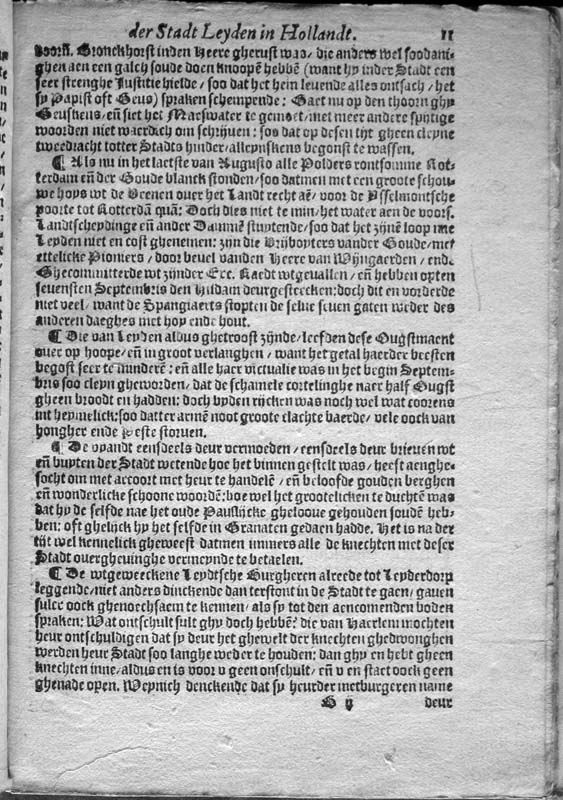 der Stadt Leyden in Hollandt. 11
voorñ. Gronckhorst inden Heere gherust was/ die anders wel soodani-
ghen aen een galch soude doen knoopē hebbē (want hy inder Stadt een
seer strenghe Justitie hielde/ soo dat het hem levende alles ontsach/ het
sy Papist oft Geus) spraken schempende: Gaet nu op den thoorn ghy
Geuskens/ eñ siet het Maeswater te gemoet/ met meer andere spytige
woorden niet waerdich om schrijven: soo dat op desen tijt gheen cleyne
tweedracht totter Stadts hinder/ alleynskens begonst te wassen.
¶ Als nu in het laetste van Augusto alle Polders rontsomme Rot-
terdam eñ der Goude blanck stonden/ soo datmen met een groote schou-
we hoys wt de Veenen over het Landt recht aē/ voor de Ysselmontsche
poorte tot Rotterdā quā: Doch dies niet te min/ het water aen de voors.
Landtscheydinge eñ ander Dammē stuytende/ soo dat het zijnē loop nae
Leyden niet en cost ghenemen: zijn die Vrijbuyters vander Goude/ met
ettelicke Pioniers/ door bevel vanden Heere van Wijngaerden/ ende
Ghecommitteerde wt zijnder Ecc. Raedt wtgevallen/ eñ hebben opten
sevensten Septembris den Hildam deurgesteecken: doch dit en vorderde
niet veel/ want de Spangiaerts stopten de selve seven gaten weder des
anderen daeghes met hop ende hout.
¶ Die van Leyden aldus ghetroost zijnde/ leefden dese Ougstmaent
over op hoope/ eñ in groot verlanghen/ want het getal haerder beesten
begost seer te minderē: eñ alle haer victualie was in het begin Septem-
bris soo cleyn gheworden/ dat de schamele cortelinghe naer half Ougst
gheen broodt en hadden: doch byden rijcken was noch wel wat coorens
int heymelick: soo datter armē noot groote clachte baerde/ vele oock van
hongher ende Peste storven.
¶ De vyandt eensdeels deur vermoeden/ eensdeels deur brieven wt
eñ buyten der Stadt wetende hoe het binnen gestelt was/ heeft aenghe-
socht om met accoort met heur te handelē/ eñ beloofde gouden berghen
eñ wonderlicke schoone woordē: hoe wel het grootelicken te duchtē was
dat hy de selfde nae het oude Pauslijcke gheloove gehouden soudē heb-
ben: oft ghelijck hy het selfde in Granaten gedaen hadde. Het is na der
tijt wel kennelick gheweest datmen immers alle de knechten met deser
Stadt overghevinghe vermeynde te betaelen.
¶ De wtgeweeckene Leydtsche Burgheren alreede tot Leyderdorp
leggende/ niet anders dinckende dan terstont in de Stadt te gaen/ gaven
sulcx oock ghenoechsaem te kennen/ als sy tot den aencomenden boden
spraken: Wat ontschult sult ghy doch hebbē? die van Haerlem mochten
heur ontschuldigen dat sy deur het ghewelt der knechten ghedwonghen
werden heur Stadt soo langhe weder te houden: dan ghy en hebt gheen
knechten inne/ aldus en is voor u geen onschult/ eñ u en staet oock geen
ghenade open. Weynich denckende dat sy heurder metburgeren name
G ij deur